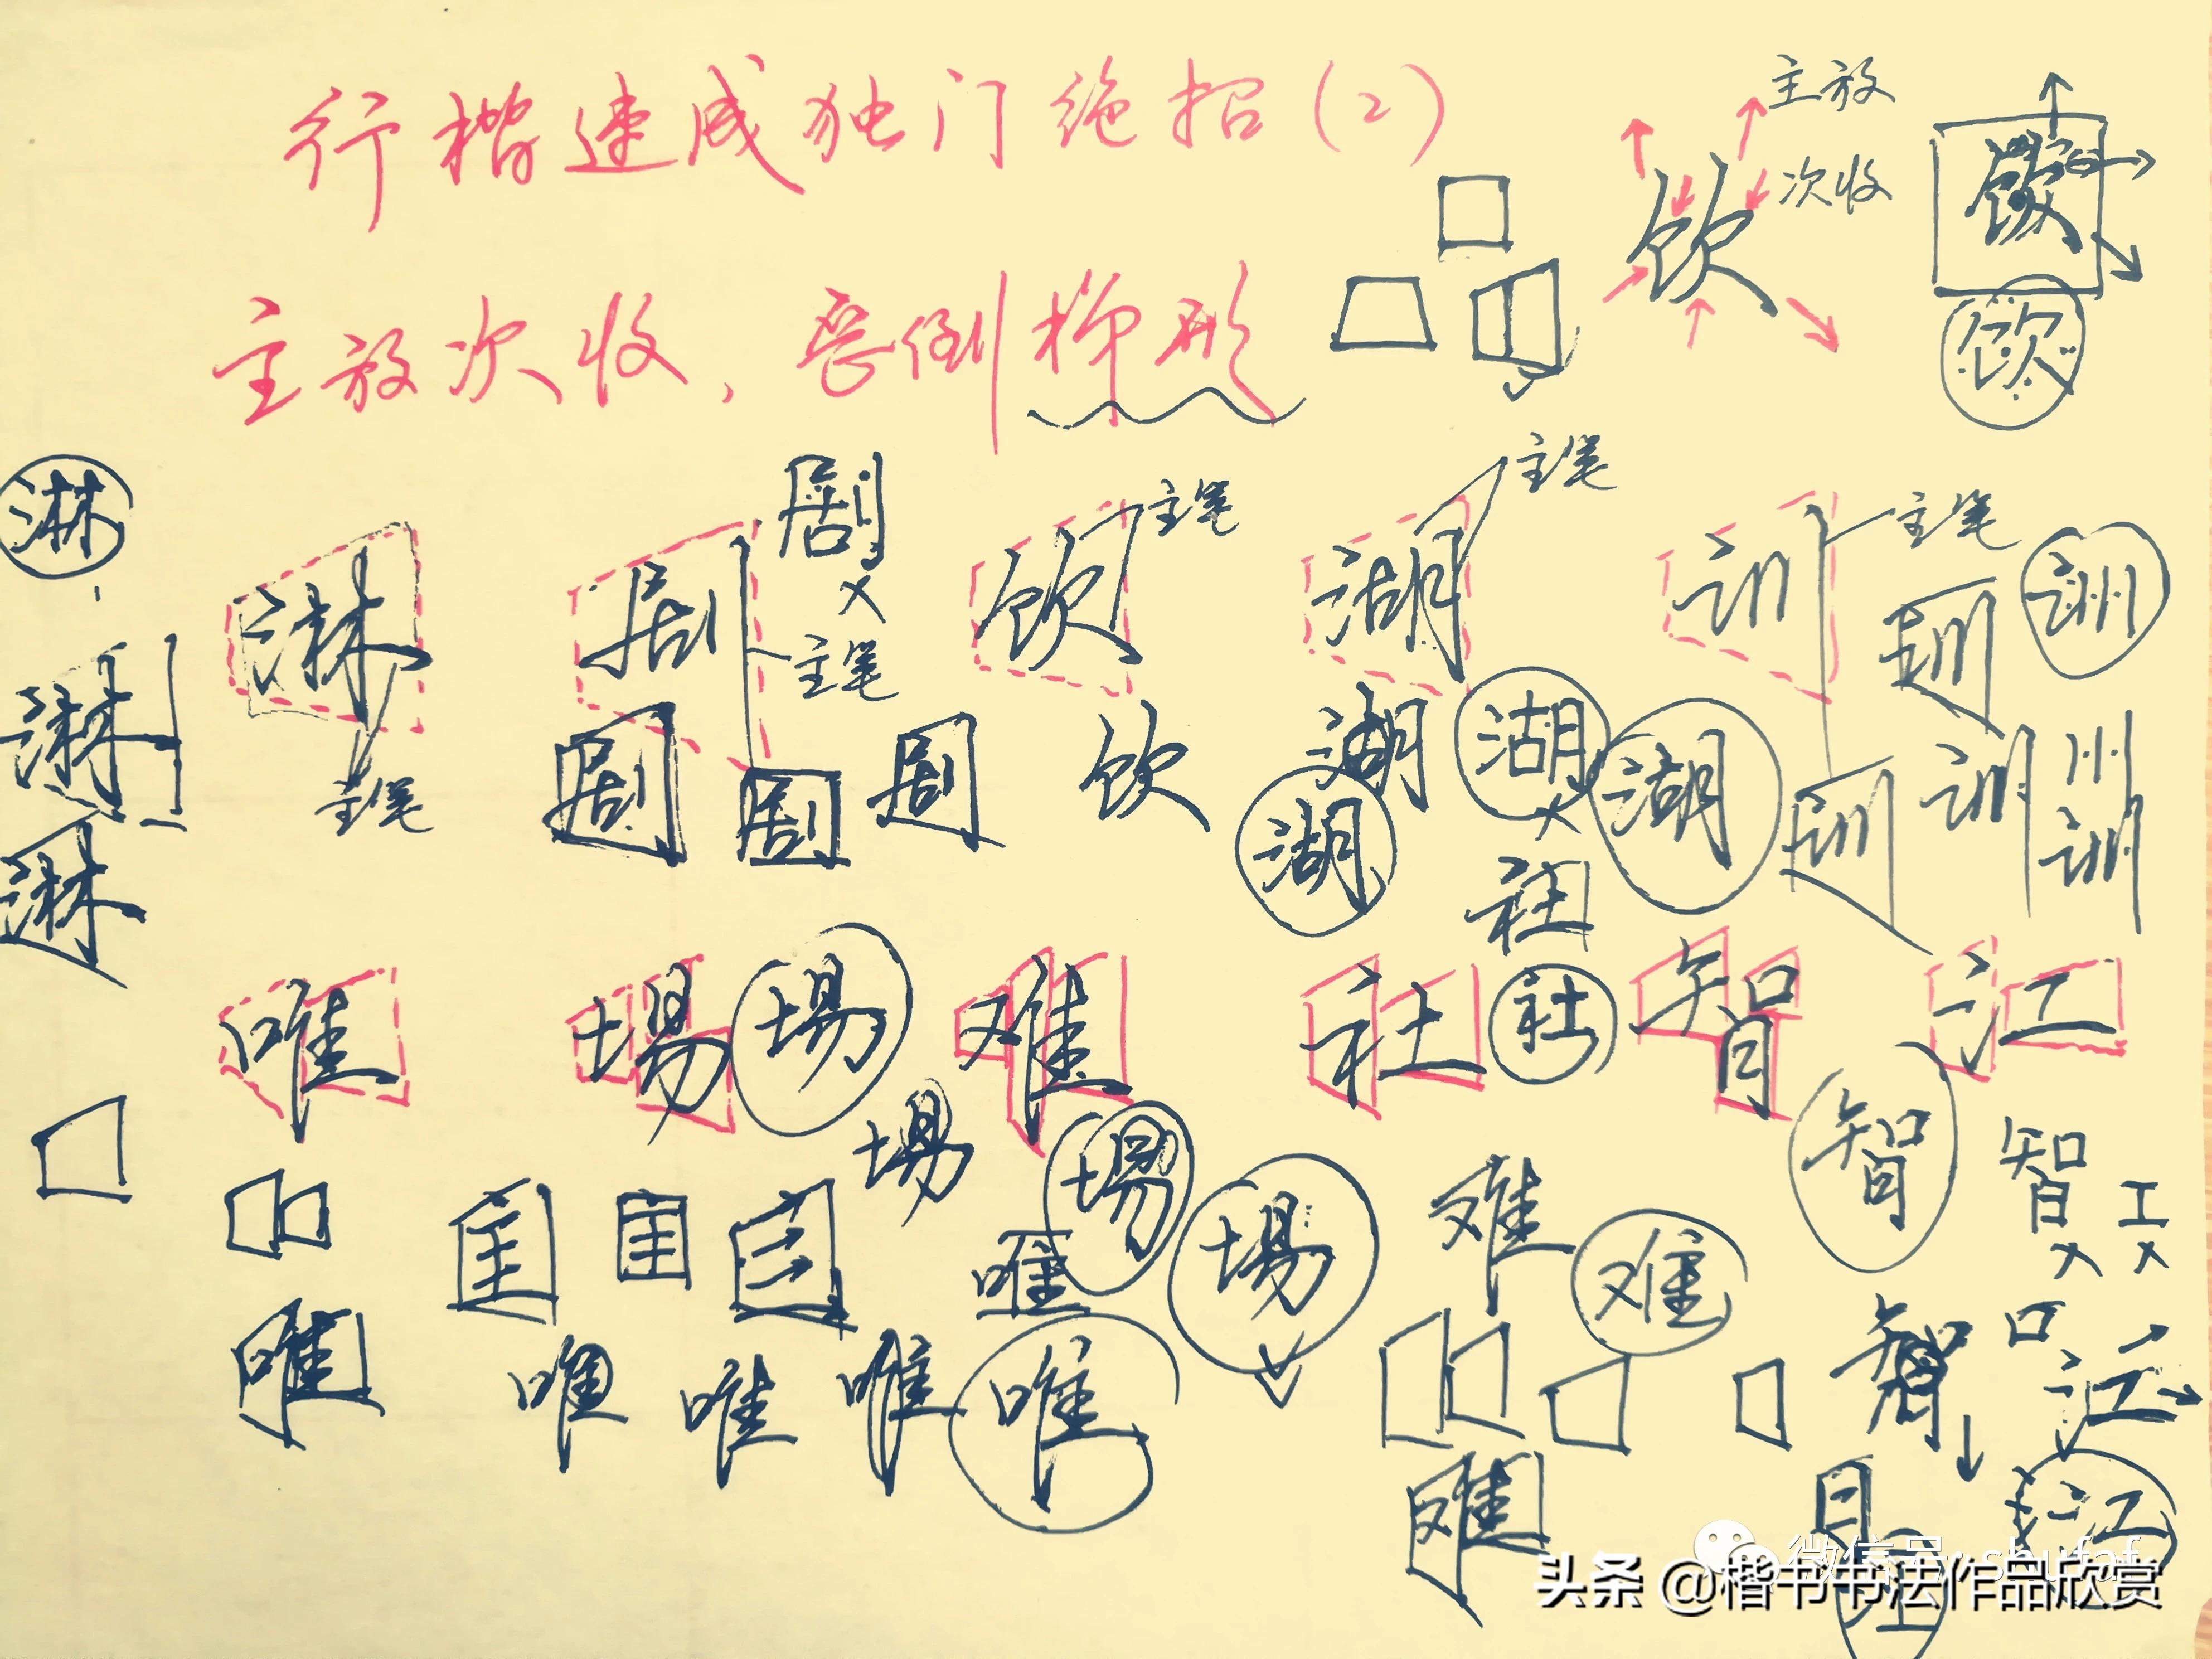 行楷速成独门绝招(2)
主放
次收
饮
饮
饮
主放次收,要倒梯形
淋
淋
主笔
剧
剧
×
主笔
饮
主笔
湖
主笔
训
主笔
训
训
淋
淋
剧
剧
剧
饮
湖
湖
×
湖
湖
训
训
训
社
唯
場
場
难
社
社
智
江
場
場
場
唯
难
难
智
智
×
工
×
唯
唯
唯
唯
唯
智
口
江
难
目
江
微信号: shufaf
头条 @楷书书法作品欣赏